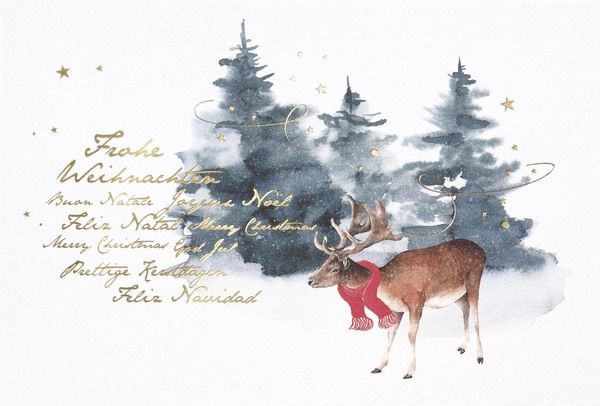 Frohe
Weihnachten
Buon Natale Joyeux Noël
Feliz Natal Merry Christmas
Merry Christmas God Jul
Prettige Kerstdagen
Feliz Navidad